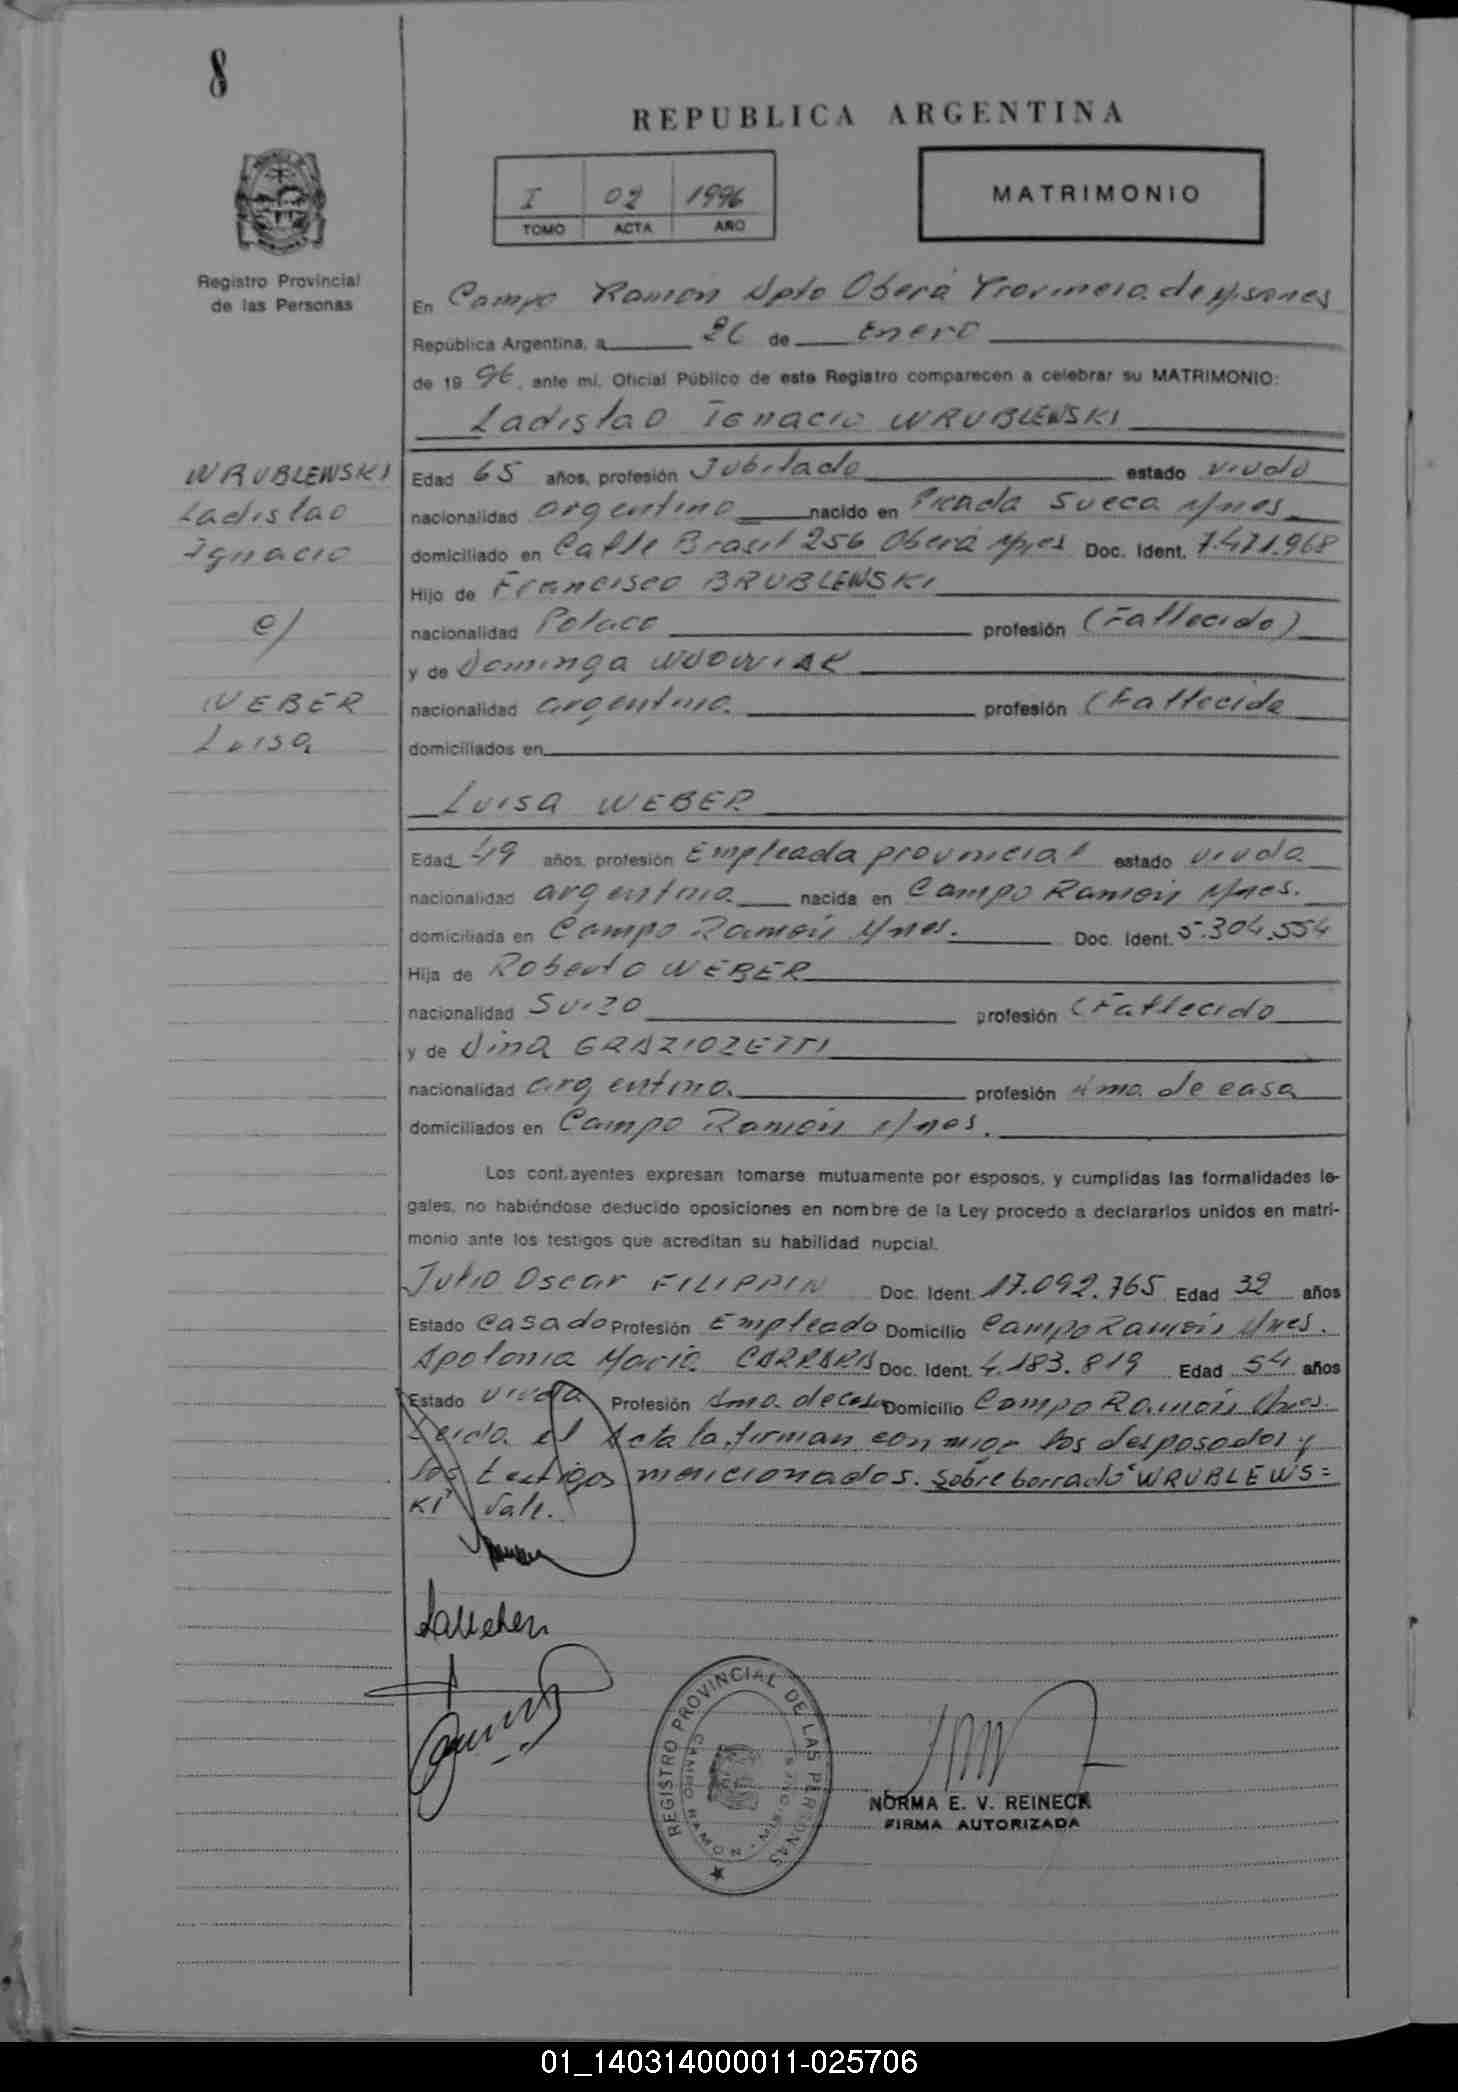 8
REPUBLICA ARGENTINA
I 02 1996
TOMO ACTA AÑO
MATRIMONIO
Registro Provincial
de las Personas
En Campo Ramón Dpto Oberá Provincia de Misiones
República Argentina, a 26 de Enero
de 1996, ante mí, Oficial Público de este Registro comparecen a celebrar su MATRIMONIO:
Ladislao Ignacio WRUBLEWSKI
WRUBLEWSKI
Ladislao
Ignacio
c/
WEBER
Luisa
Edad 65 años, profesión Jubilado estado viudo
nacionalidad argentino nacido en Picada Sueca Mnes
domiciliado en Calle Brasil 256 Oberá Mnes Doc. Ident. 7.471.968
Hijo de Francisco BRUBLEWSKI
nacionalidad Polaco profesión (Fallecido)
y de Dominga
nacionalidad argentina profesión (Fallecida
domiciliados en
Luisa WEBER
Edad 49 años, profesión Empleada provincial estado viuda
nacionalidad argentina nacida en Campo Ramón Mnes.
domiciliada en Campo Ramón Mnes. Doc. Ident. 5.304.554
Hija de Roberto WEBER
nacionalidad Suizo profesión (Fallecido
y de Dina GRAZIOZETTI
nacionalidad argentina profesión Ama de casa
domiciliados en Campo Ramón Mnes.
Los contrayentes expresan tomarse mutuamente por esposos, y cumplidas las formalidades le-
gales, no habiéndose deducido oposiciones en nombre de la Ley procedo a declararlos unidos en matri-
monio ante los testigos que acreditan su habilidad nupcial.
Julio Oscar FILIPPIN Doc. Ident. 17.092.765 Edad 32 años
Estado Casado Profesión Empleado Domicilio Campo Ramón Mnes.
Apolonia María CARRARA Doc. Ident. 4.183.819 Edad 54 años
Estado viuda Profesión Ama de casa Domicilio Campo Ramón Mnes.
Leida el Acta la firman conmigo los desposados y
los testigos mencionados. Sobre borrado "WRUBLEWS=
KI" Vale.
REGISTRO PROVINCIAL DE LAS PERSONAS
CAMPO RAMON - MISIONES
NORMA E. V. REINECK
FIRMA AUTORIZADA
01_140314000011-025706